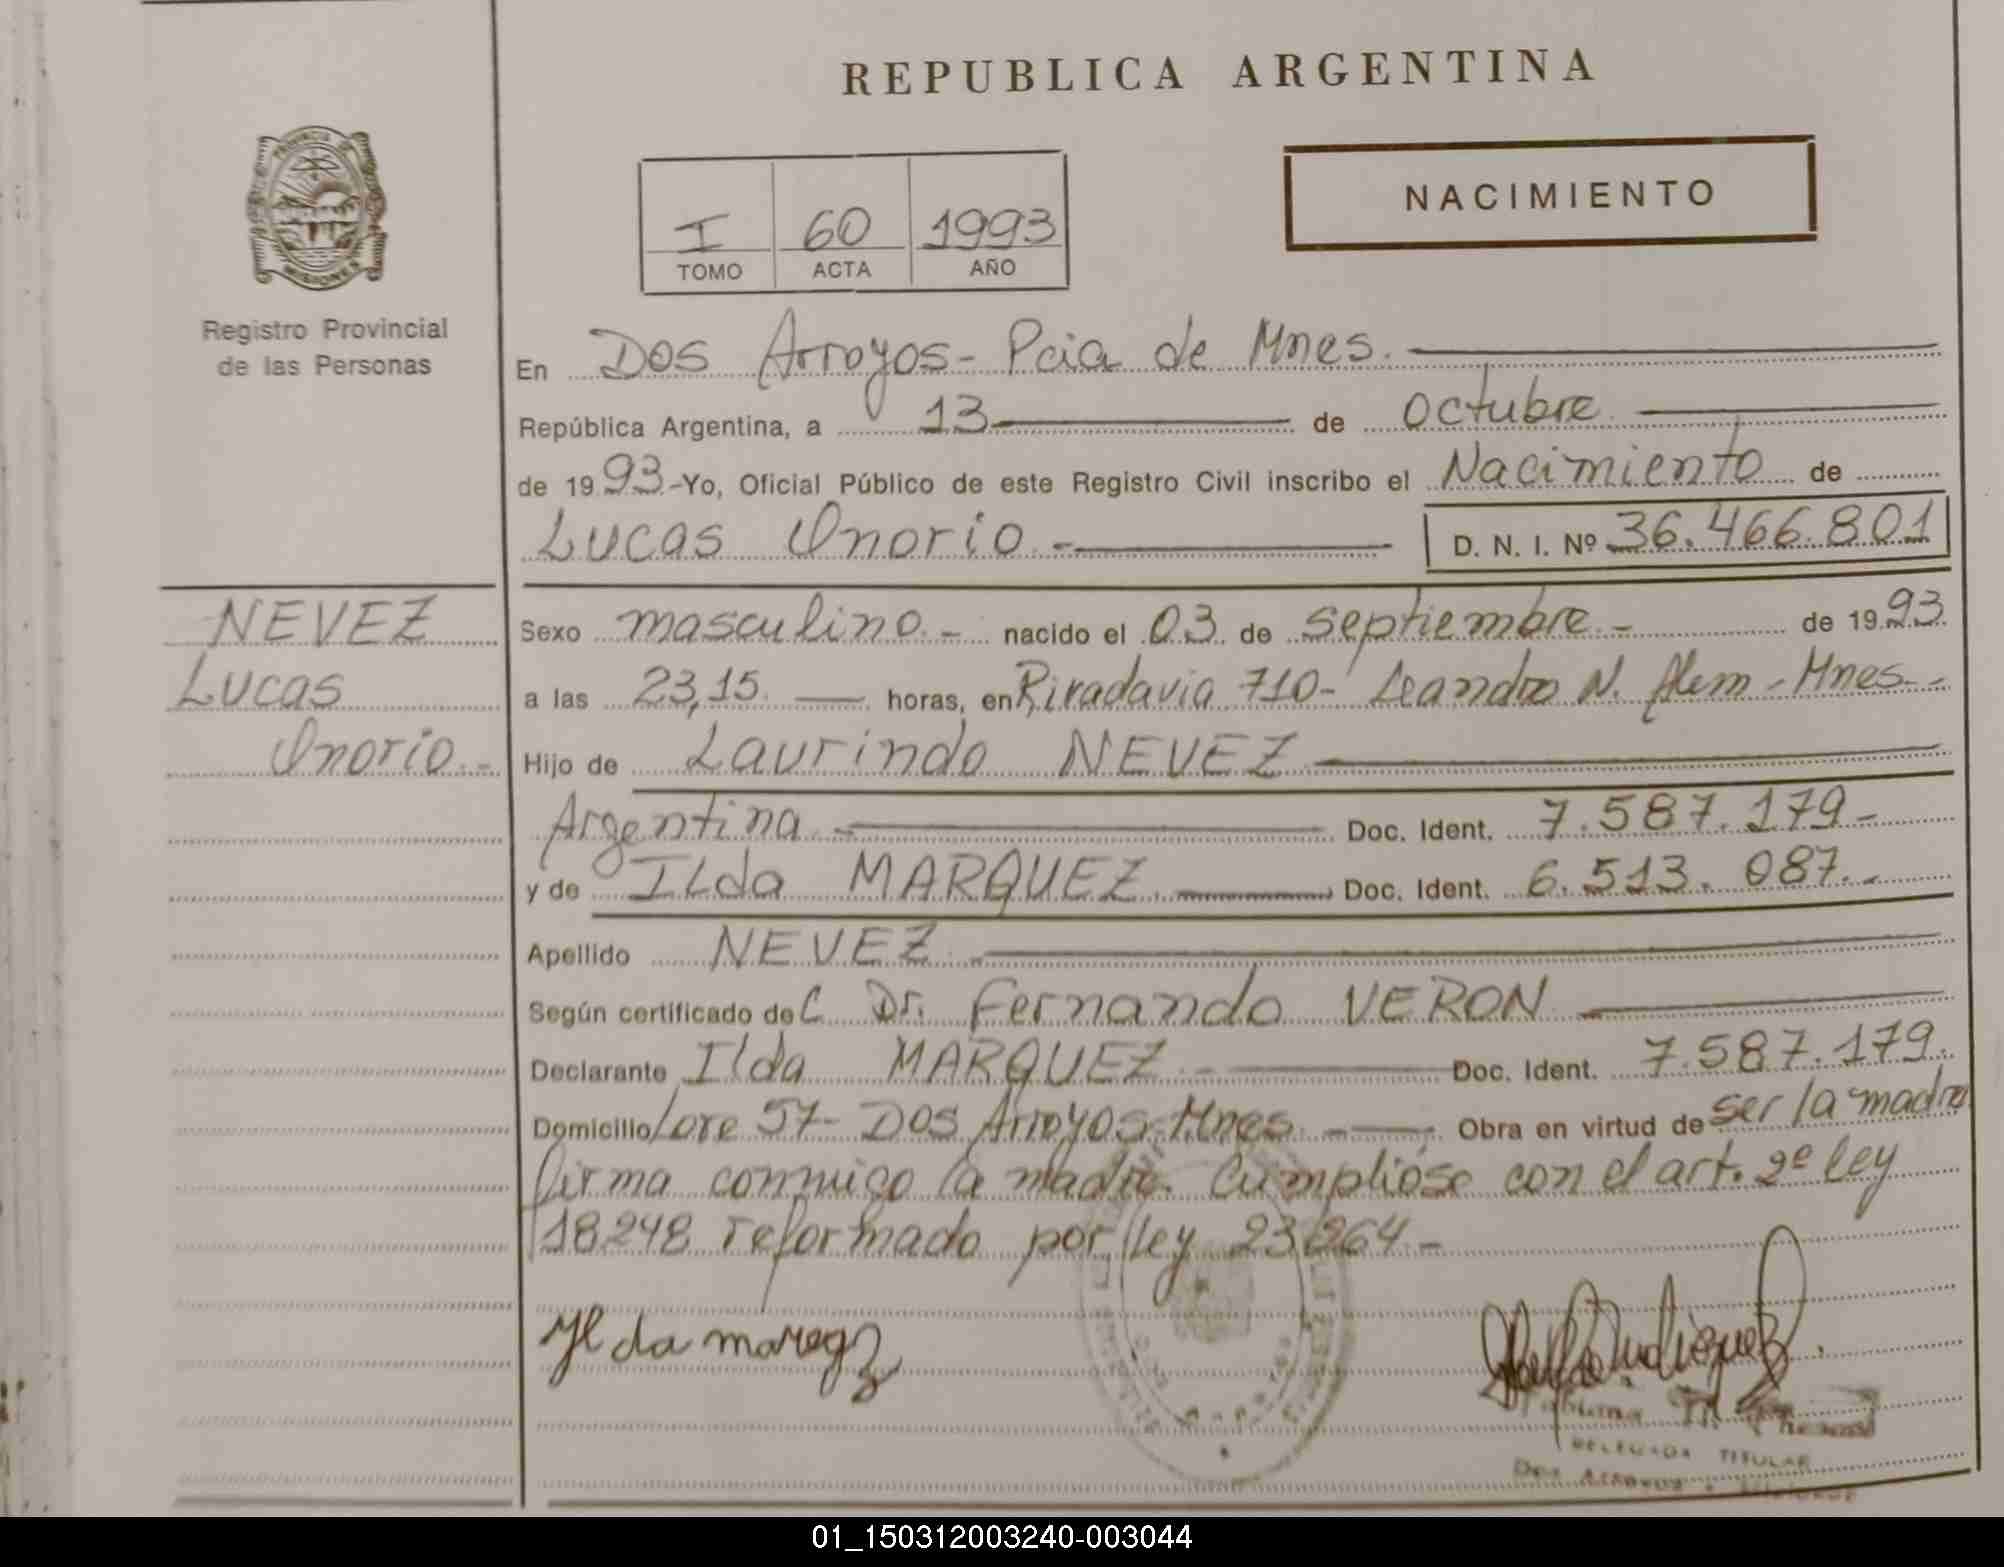 REPUBLICA ARGENTINA
NACIMIENTO
I 60 1993
TOMO ACTA AÑO
PROVINCIA DE
MISIONES
Registro Provincial
de las Personas
En Dos Arroyos - Pcia de Mnes.
República Argentina, a 13 de Octubre
de 1993 - Yo, Oficial Público de este Registro Civil inscribo el Nacimiento de
Lucas Onorio.- D. N. I. Nº 36.466.801
NEVEZ
Lucas
Onorio.-
Sexo masculino.- nacido el 03 de septiembre.- de 1993.
a las 23,15. horas, en Rivadavia 710- Leandro N. Alem - Mnes.-
Hijo de Laurindo NEVEZ
Argentina.- Doc. Ident. 7.587.179-
y de ILda MARQUEZ. Doc. Ident. 6.513.087.-
Apellido NEVEZ.
Según certificado de C Dr. Fernando VERON
Declarante Ilda MARQUEZ.- Doc. Ident. 7.587.179.
Domicilio Lote 57- Dos Arroyos-Mnes.- Obra en virtud de ser la madre
firma conmigo la madre. Cumplióse con el art. 2º ley
18248 reformado por ley 23264-
Ylda maregz
DELEGADA TITULAR
Dos Arroyos - Misiones
01_150312003240-003044